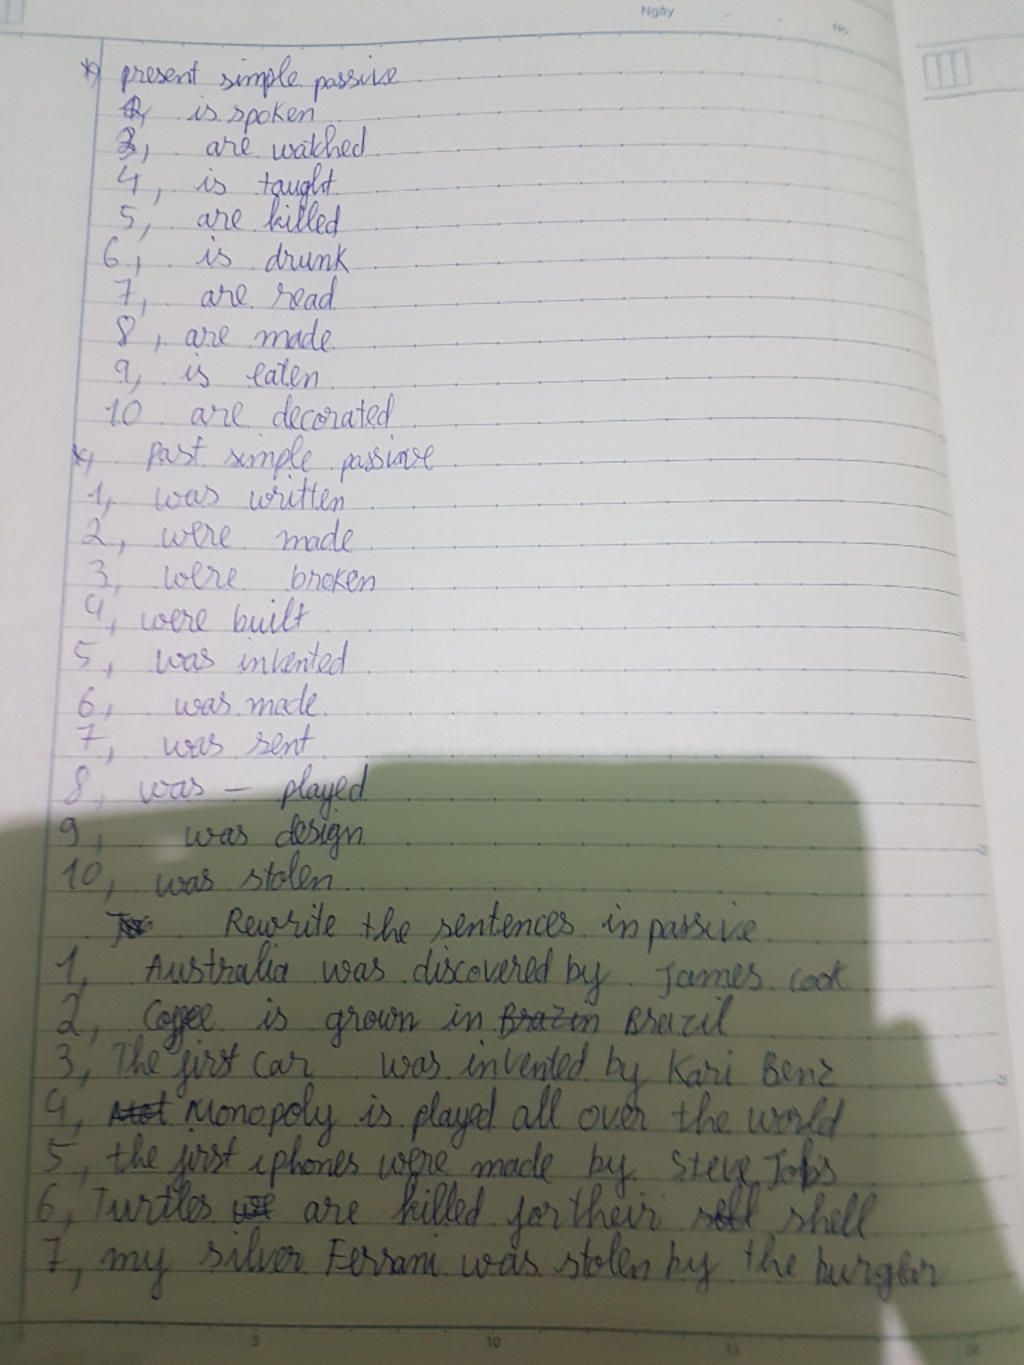 Ngày
No.
*) present simple passive
2, is spoken
3, are watched
4, is taught
5, are killed
6, is drunk
7, are read
8, are made
9, is eaten
10 are decorated
*) Past simple passive
1, was written
2, were made
3, were broken
4, were built
5, was invented
6, was made
7, was sent
8, was – played
9, was design
10, was stolen
Rewrite the sentences in passive
1, Australia was discovered by James Cook
2, Coffee is grown in Brazin Brazil
3, The first car was invented by Kari Benz
4, Monopoly is played all over the world
5, the first iphones were made by Steve Jobs
6, Turtles are killed for their shell
7, my silver Ferrani was stolen by the burglar
5 10 15 20